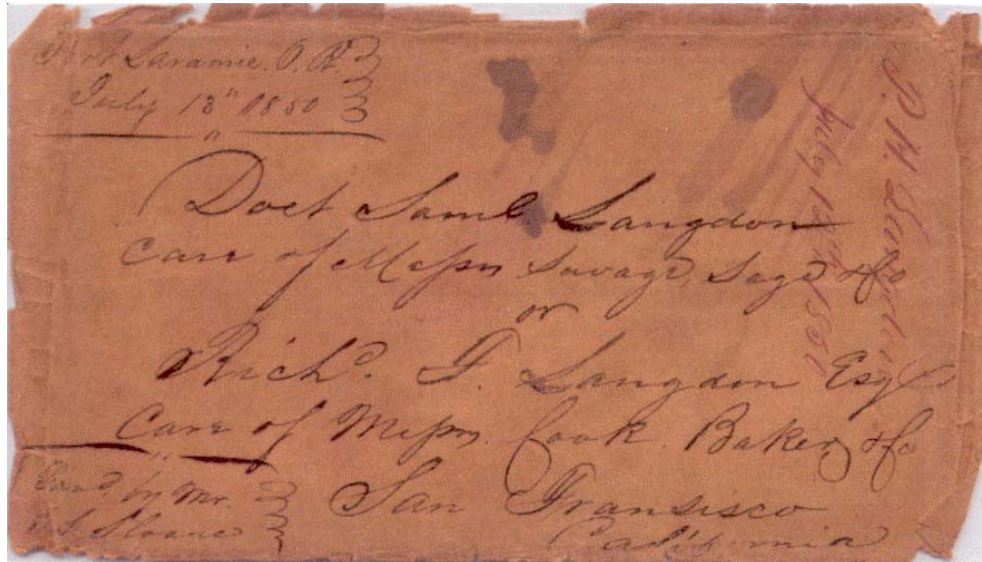 Fort Laramie. O. R.
July 13" 1850
Doct Saml. Langdon
Care of Messrs Savage, Sage & Co
or
Richd. F. Langdon Esq
Care of Messrs. Cook. Baker & Co
San Fransisco
California
by Mr.
Sloane
P. H.
July 12th